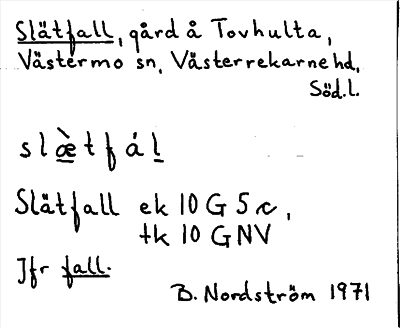 Slätfall, gård å Tovhulta,
Västermo sn, Västerrekarne hd,
Söd.l.
slæ̀tfál
Slätfall ek 10 G 5 c,
tk 10 G NV
Jfr fall.
B. Nordström 1971